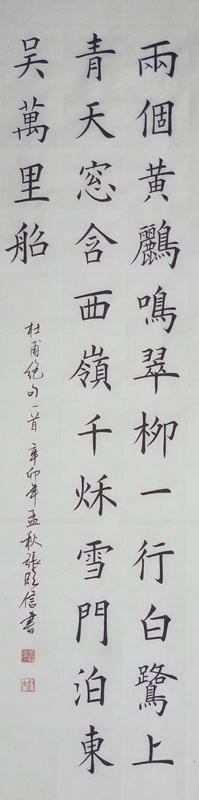 兩個黃鸝鳴翠柳一行白鷺上
青天窓含西嶺千烁雪門泊東
吴萬里船
杜甫绝句一首 辛卯年孟秋張 信書